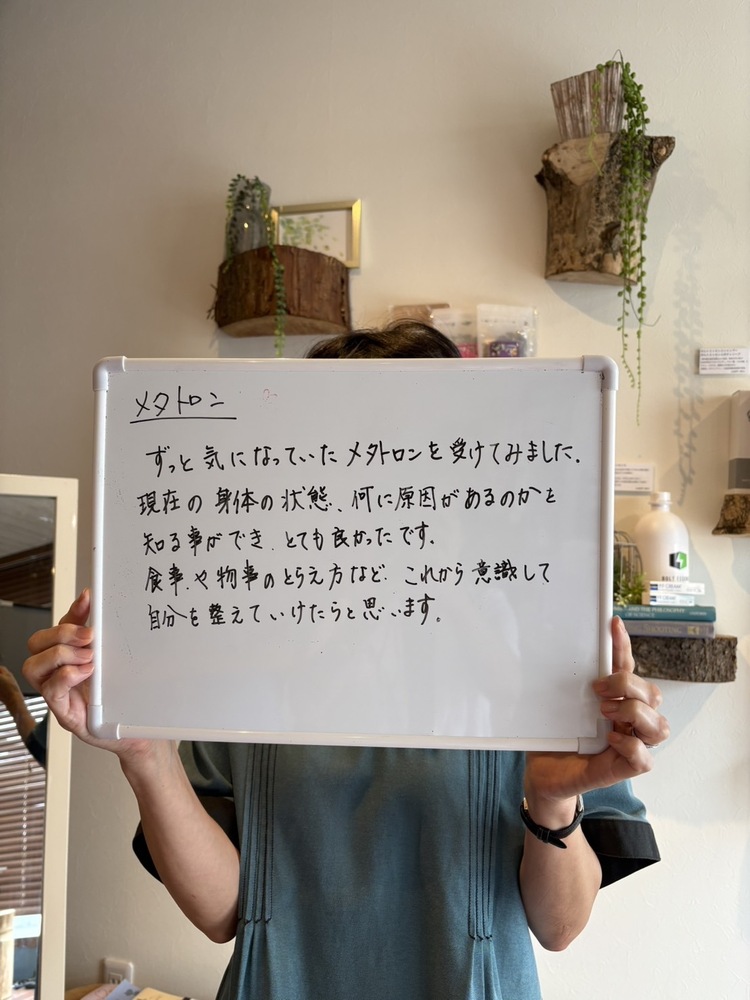 メタトロン
ずっと気になっていたメタトロンを受けてみました.
現在の身体の状態、何に原因があるのかを
知る事ができ、とても良かったです.
食事、や物事のとらえ方など、これから意識して
自分を整えていけたらと思います。
HOLY
THE PHILOSOPHY
OF SCIENCE